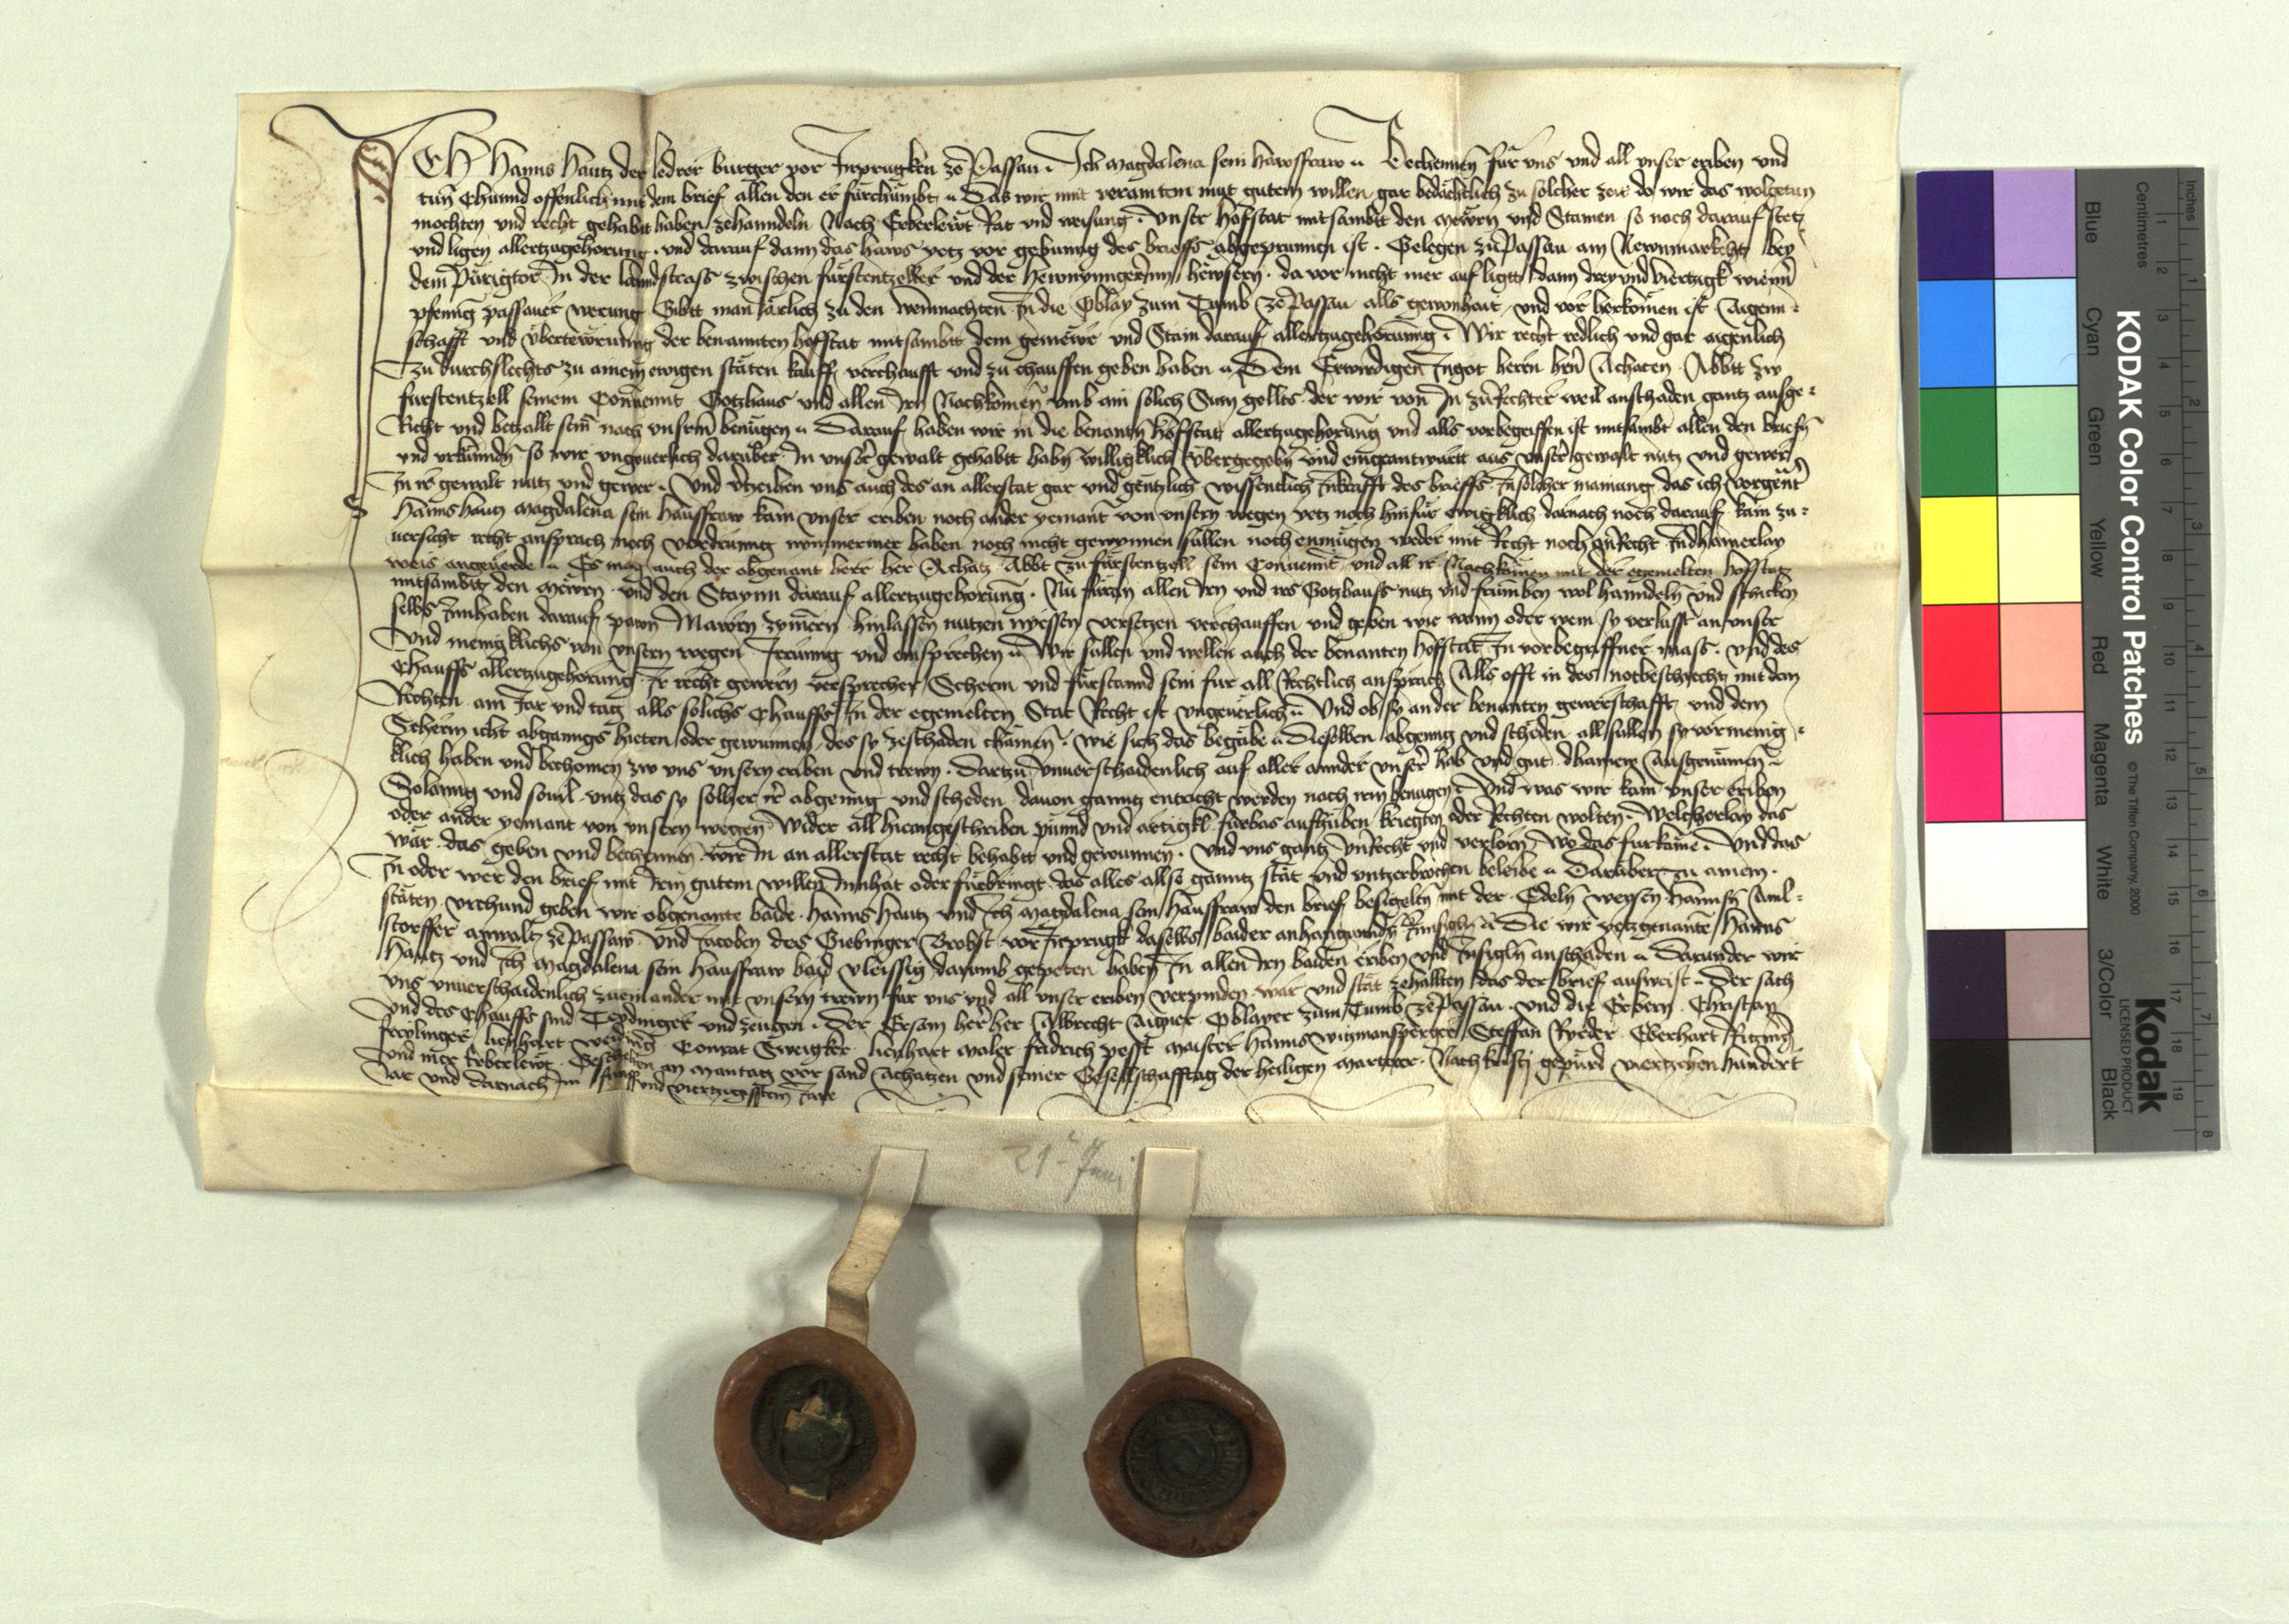 ICH Hanns Hautz der ledrer burger vor Inprugken ze Passau. Ich Magdalena sein hawsfraw Bechennen für vns vnd all vnser eriben vnd
tun Chunnd offenlich mit dem brief allen den er fürchumbt Das wir mit veraintem mut gutem willen gar bedächtlich zu solcher zeit do wir das wolgetun
mochten vnd recht gehabt haben zehanndeln Nach Erberlewt Rat vnd weisung. vnser hofstat mitsambt den mewrn vnd Stainen so noch darauf stet
vnd ligen allertzugehorung. vnd darauf dann das haws yetz vor gebunng des brieffs abgeprunnen ist. Gelegen zu Passau am Newnmarkcht bey
dem Pürigtor In der lanndstrass zwischen fürstentzeller vnd der hewnyngerinn hewsern. da vor nicht mer auf ligt dann drey vnd viertzigk wienn
pfennig passauer werung Gibt man iärlich zu den weinnachten In die Oblay zum Tumb ze Passau alls gewonhait vnd vor herkomen ist Aigenn-
schafft vnd übertewrunng der benannten hofstat mitsambt dem gemewr vnd Stain darauf allertzugehorunng. Wir recht redlich vnd gar aigenlich
Zu durchslechts zu ainem ewigen stäten kauff verchaufft vnd zu chauffen geben haben Dem Erwirdigen Ingot herrn hern Achacen Abbt zw
fürstentzell seinem Conuennt Gotzhaus vnd allen Irn Nachkomen vmb ain solich Sum gellts der wir von In zu Rechter weil anschaden gantz ausge-
Richt vnd betzallt sein nach vnserm benügen Darauf haben wir in die benantn hofstat allertzugehorung vnd alls vorbegriffen ist mitsambt allen den briefn
vnd vrkunndn so wir vngeuerlich darüber In vnser gewalt gehabt habn willigklich übergegebn vnd eingeantwurtt aus vnser gewalt nutz vnd gewer
In ir gewalt nutz vnd gewer. Vnd vertzeihen vns auch des an allerstat gar vnd gentzlich wissentlich Inkrafft des brieffs In solher mainung das ich vorgenant
Hanns Hautz Magdalena sein hausfraw kain vnser eriben noch ander yemant von vnsern wegen yetz noch hinfür ewigklich darnach noch darauf kain zu-
uersicht recht ansprach noch vordrunng nymmermer haben noch nicht gewynnen süllen noch enmügen weder mit Recht noch an Recht In dhainerlay
weis angeuerde Es mag auch der obgenant herr her Achatz Abbt zu fürstentzell sein Conuennt vnd all ir Nachkomen mit der egemelten hofstat
mitsambt den mewrn vnd den Staynn darauf allertzugehorung. Nu füran allen Irn vnd irs Gotzhauss nutz vnd frumben wol hanndeln vnd schicken
selbs Innhaben darauf pawn Mawrn zymern hinlassen nutzen nyessen versetzen verchauffen vnd geben wie wann oder wem sy verlusst an vnser
Vnd menigklichs von vnsern wegen Irrunng vnd einsprechen Wir süllen vnd wellen auch der benanten hofstat In vorbegriffner mass. vnd des
Chauffs allertzugehorung Ir recht gewern versprecher Scherm vnd fürstannd sein für all Rechtlich ansprach Alls offt in des notbeschiecht mit dem
Rechten. am Jar vnd tag alls solichs Chauffs In der egemelten Stat Recht ist vngeuerlich Vnd ob sy an der benanten gewerschafft vnd dem
Scherm icht abganngs hieten oder gewunnen des sy zeschaden chämen. wie sich das begäbe Dieselben abgenng vnd schäden all süllen sy vormenig-
klich haben vnd bechomen zw vns vnsern eriben vnd trewn. Dartzu vnuerschaidenlich auf aller annder vnser hab vnd gut dhainew Ausgenumen
Solanng vnd souil. vntz das sy solher ir abgenng vnd scheden dauon ganntz enricht werden nach irm benügen. Vnd was wir kain vnser eriben
oder ander yemant von vnsern wegen Wider all hieangeschriben pünnd vnd artigkl fürbas aufhüben kriegten oder Rechten wolten. Welcherlay das
wär. das geben vnd bechennen wir In an allerstat recht behabt vnd gewunnen. Vnd vns gantz vnRecht vnd verlorn Wo das fürkäme. Vnd das
In oder wer den brief mit Irm gutem willen Innhat oder fürbringt das alles allso ganntz stät vnd vntzerbrochen beleibe Darüber zu ainem.
stäten vrchund geben wir obgenante baide Hanns Hautz vnd Ich Magdalena sein hausfraw den brief besigeltn mit der Edeln weysen Hannsn Aml-
storffer anwalt ze Passaw Vnd Jacoben des Giebinger Brobst vor Inprugk daselbs baider anhangunndn Innsigln Die wir yetzgenante Hanns
Hautz vnd Ich Magdalena sein hausfraw baid vleissig darumb gepeten haben In allen Irn baiden eriben vnd Insigln anschaden Darunder wir
vns vnuerschaidenlich zueinander mit vnsern trewn für vns vnd all vnser eriben verpinden. war vnd stät zehallten das der brief ausweist Der sach
Vnd des Chauffs sind Teydinger vnd zeugen. Der Ersam her her Albrecht Aigner Oblayer zum Tumb ze Passau. Vnd die Erbern Christan
lienhart Conrat Sweigker lienhart Maler fridrich Maister Hanns witmansperger Steffan Ryeder Eberhart
vnd mer Erberlewt. Geschehen an Mantag vor sand Achatzen vnd seiner Gesellschafftag der heiligen Martrer. Nach kristi gepurd viertzehen hundert
Jar vnd darnach Im fünff vnd viertzigisstem Jare
21 Juni
KODAK Color Control Patches
© The Tiffen Company, 2000
Kodak
LICENSED PRODUCT
Inches
Centimetres
Blue
Cyan
Green
Yellow
Red
Magenta
White
3/Color
Black
1 2 3 4 5 6 7 8 9 10 11 12 13 14 15 16 17 18 19
1 2 3 4 5 6 7 8